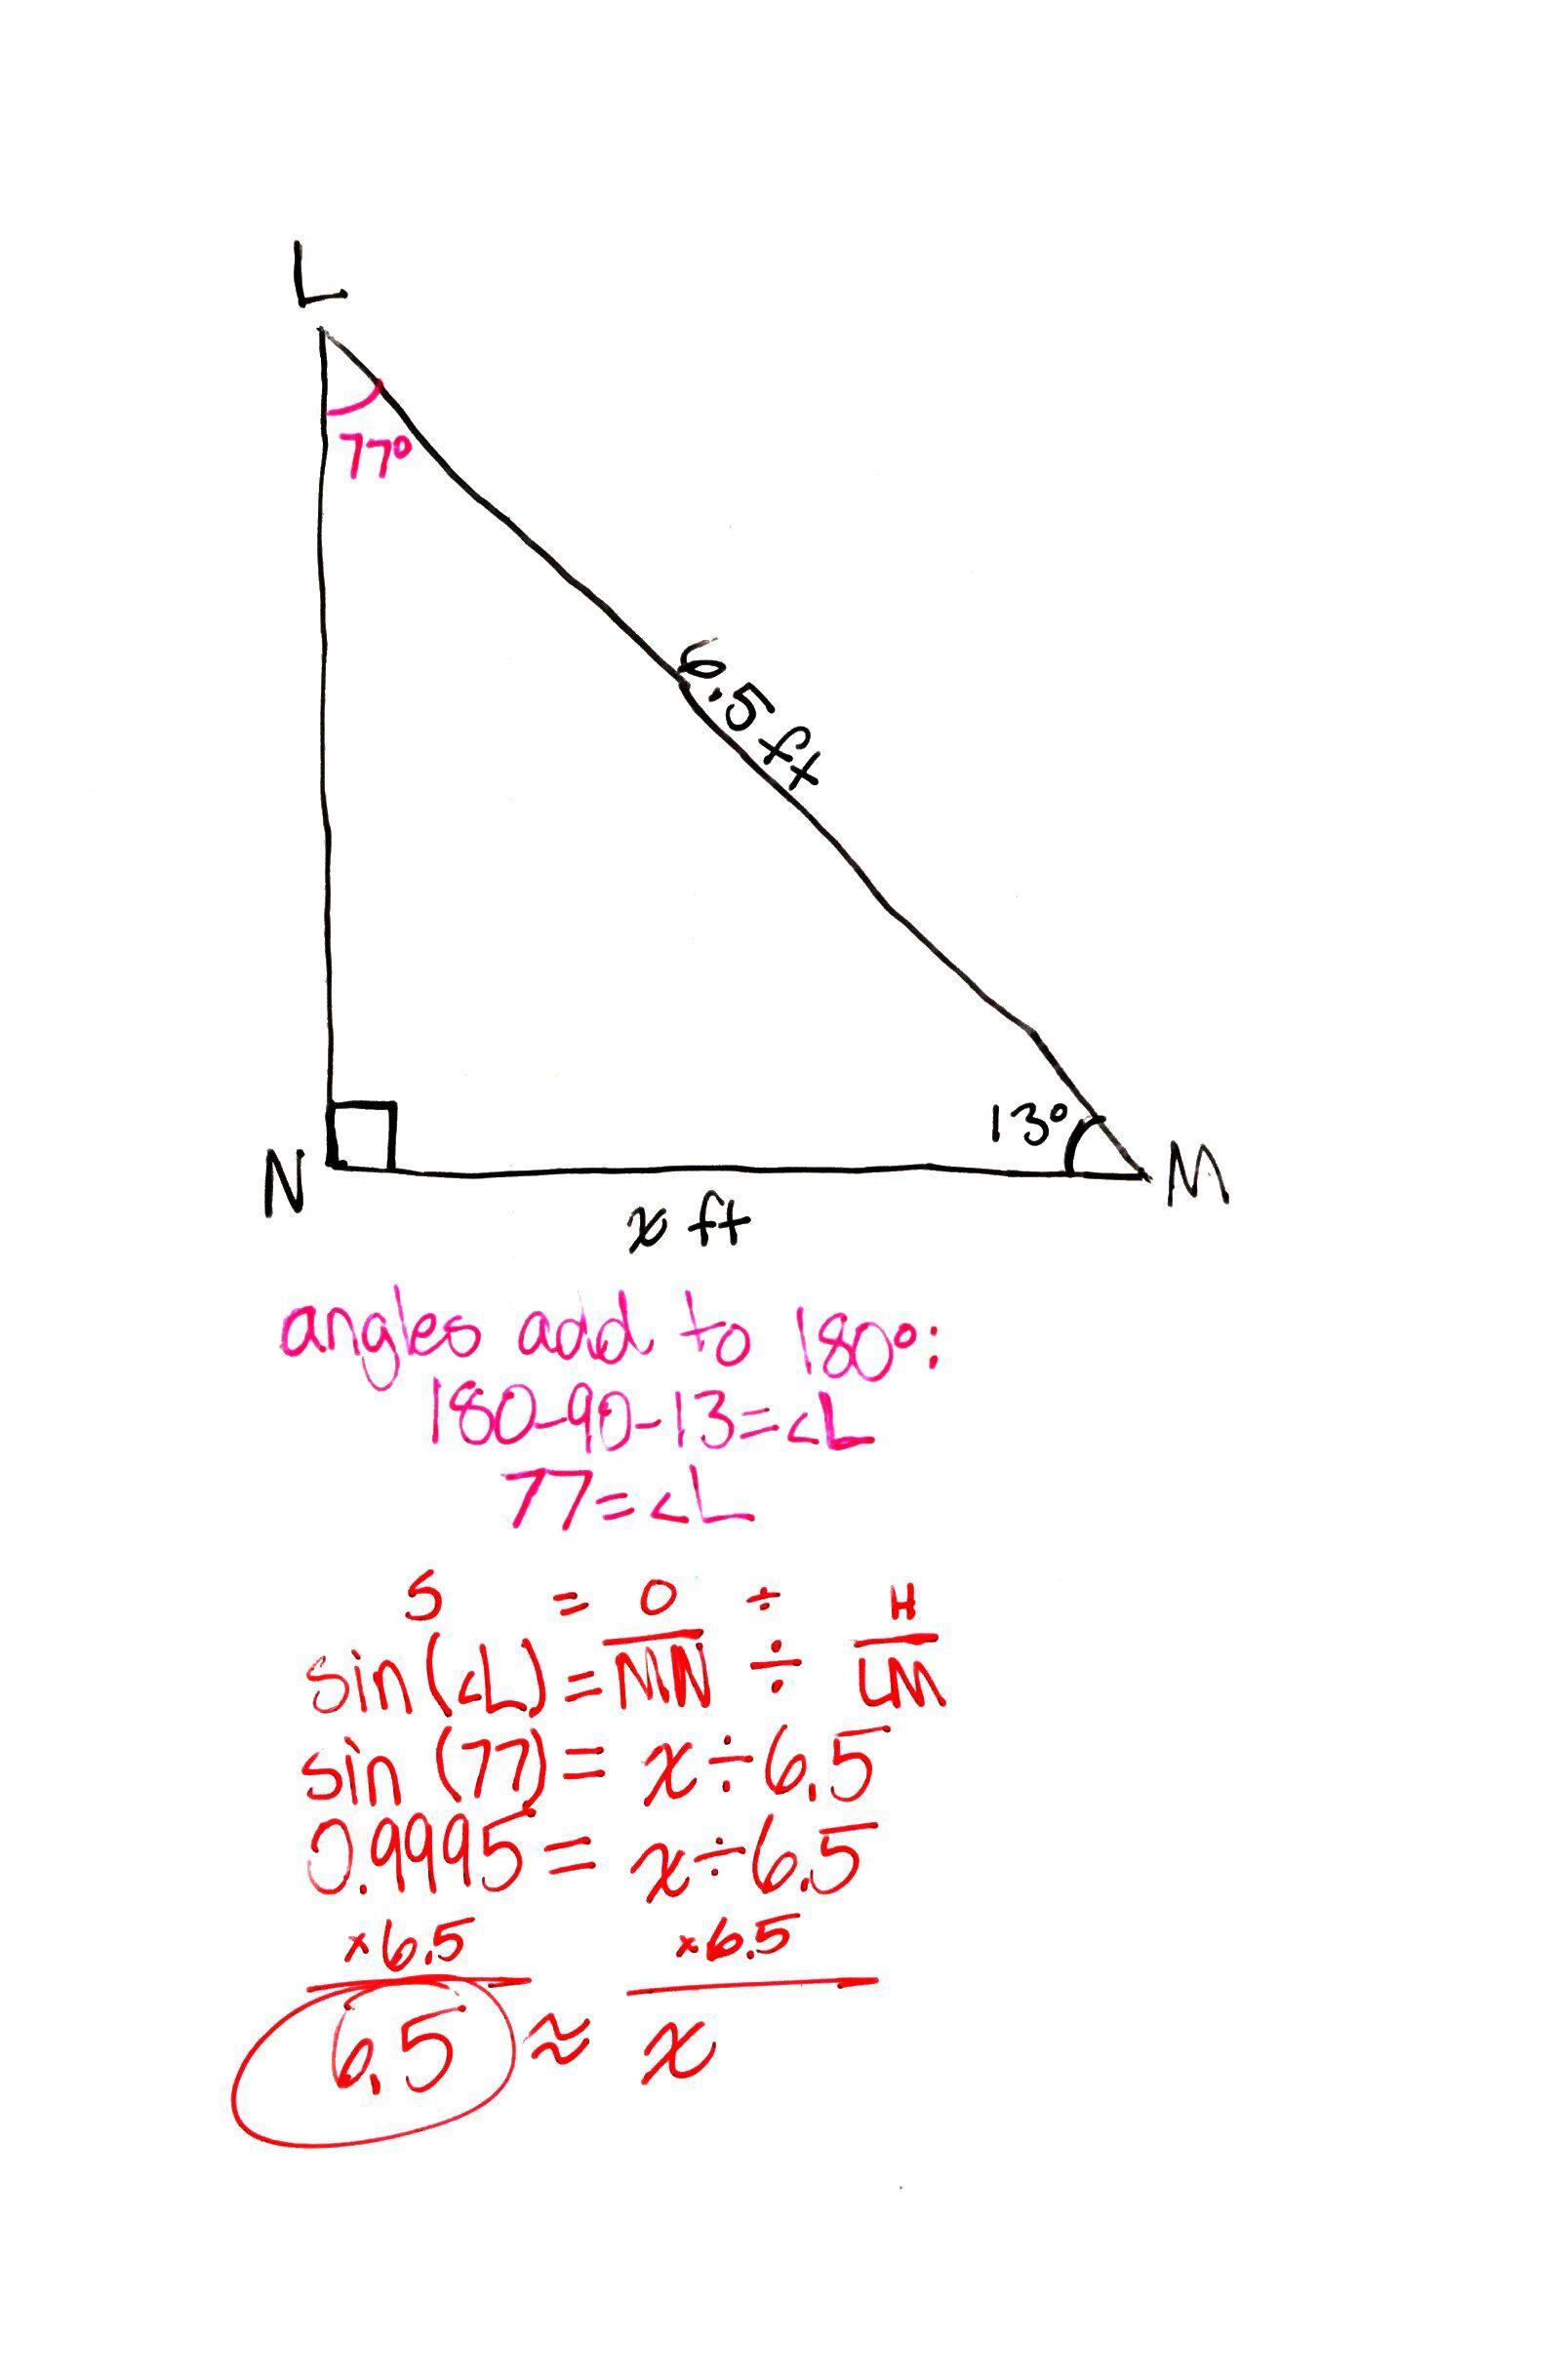 L
77°
6.5 ft
13°
N
M
x ft
angles add to 180°:
180-90-13=∠L
77=∠L
S = O ÷ H
sin(∠L)=MN ÷ LM
sin (77)= x÷6.5
0.9995= x÷6.5
×6.5 ×6.5
6.5 ≈ x